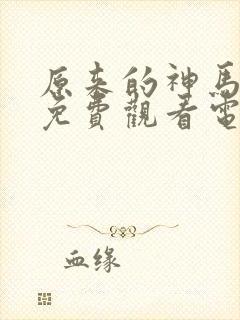 原来的神馬
免費觀看電
血缘